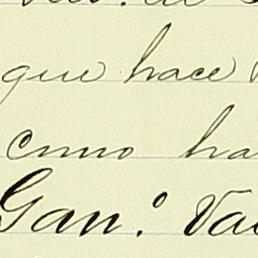 que hace
como ha
Gan.º Va